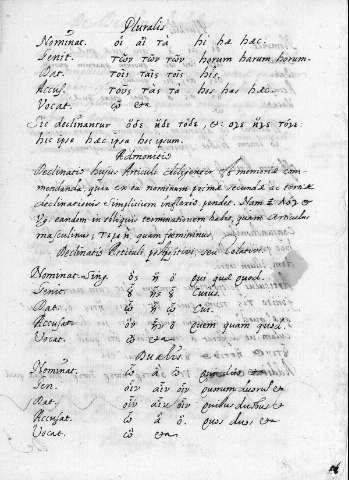 Pluralis
Nominat. οἱ αἱ τα hi hæ hæc.
Genit. τῶν τῶν τῶν horum harum horum.
Dat. τοῖς ταῖς τοῖς his.
Accus. τοὺς τὰς τὰ hos has hæc.
Vocat. ὦ
Sic declinantur ὅδε ἥδε τόδε,
hic ipse hæc ipsa hoc ipsum.
Admonicio
Declinatio hujus Articuli diligenter memoriæ com-
mendanda, quia ex ea nominum primæ secundæ ac tertiæ
declinationis simplicium inflexio pendet. Nam
eandem in obliquis terminationem habet, quam articulus
masculinus, quam fæmininus.
Declinatio Articuli postpositivi, seu Relativi.
Nominat. Sing. ὃς ἣ ὃ qui quæ quod.
Genit. Cuius.
Dat. ᾧ ᾗ ᾧ Cui.
Accusat. ὃν ἣν ὃ quem quam quod.
Vocat. ὦ
Dualis
Nominat. ὣ ἃ ὣ
Gen. οἷν αἷν οἷν quorum duorum
Dat. οἷν αἷν οἷν quibus duobus
Accusat. ὣ ἃ quos duos
Vocat. ὦ